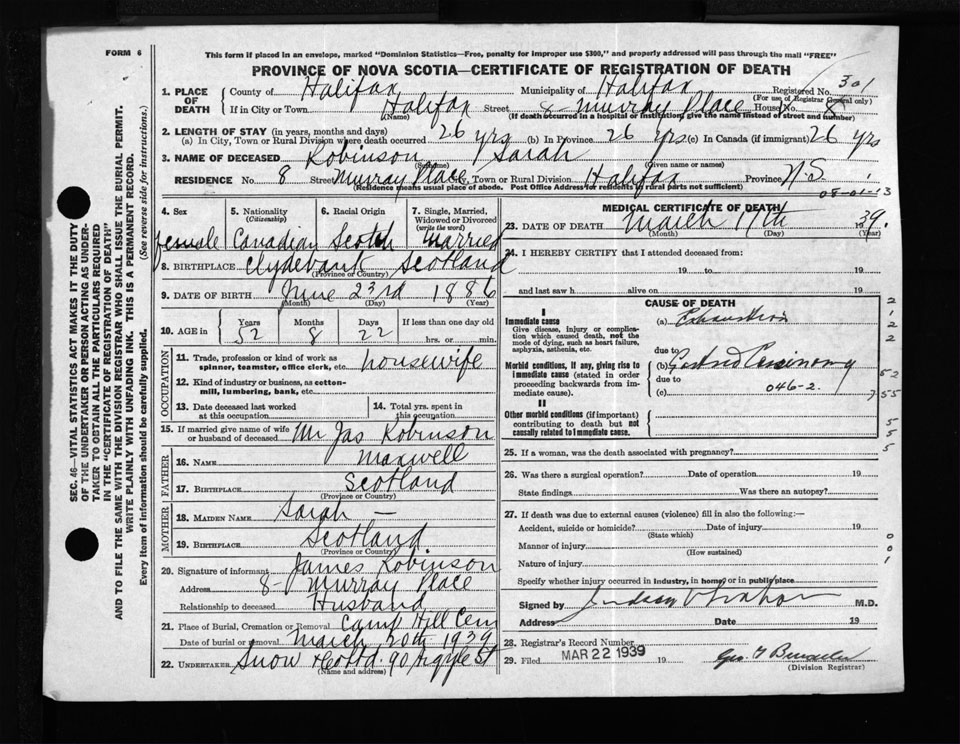 FORM 6
This form if placed in an envelope, marked "Dominion Statistics—Free, penalty for improper use $300," and properly addressed will pass through the mail "FREE"
PROVINCE OF NOVA SCOTIA—CERTIFICATE OF REGISTRATION OF DEATH
1. PLACE OF DEATH County of Halifax Municipality of Halifax Registered No. 301
(For use of Registrar General only)
If in City or Town Halifax Street 8 - Murray Place House No. 8
(Name) (If death occurred in a hospital or institution, give the name instead of street and number)
2. LENGTH OF STAY (in years, months and days)
(a) In City, Town or Rural Division where death occurred 26 yrs (b) In Province 26 yrs (c) In Canada (if immigrant) 26 yrs
3. NAME OF DECEASED Robinson Sarah
(Surname) (Given name or names)
RESIDENCE No. 8 Street Murray Place Halifax Province N.S.
(Residence means usual place of abode. Post Office Address for residents in rural parts not sufficient)
08-01-13
SEC. 46—VITAL STATISTICS ACT MAKES IT THE DUTY
OF THE UNDERTAKER OR PERSON ACTING AS UNDER-
TAKER TO OBTAIN ALL THE PARTICULARS REQUIRED
IN THE "CERTIFICATE OF REGISTRATION OF DEATH"
AND TO FILE THE SAME WITH THE DIVISION REGISTRAR WHO SHALL ISSUE THE BURIAL PERMIT.
WRITE PLAINLY WITH UNFADING INK. THIS IS A PERMANENT RECORD.
Every item of information should be carefully supplied. (See reverse side for instructions.)
4. Sex female
5. Nationality (Citizenship) Canadian
6. Racial Origin Scotch
7. Single, Married, Widowed or Divorced (write the word) Married
8. BIRTHPLACE Clydebank Scotland
(Province or Country)
9. DATE OF BIRTH June 23rd 1886
(Month) (Day) (Year)
10. AGE in Years 52 Months 8 Days 22 If less than one day old
hrs. or min.
OCCUPATION
11. Trade, profession or kind of work as spinner, teamster, office clerk, etc. housewife
12. Kind of industry or business, as cotton-mill, lumbering, bank, etc.
13. Date deceased last worked at this occupation
14. Total yrs. spent in this occupation
15. If married give name of wife or husband of deceased Mr Jas Robinson
FATHER
16. NAME Maxwell
17. BIRTHPLACE Scotland
(Province or Country)
MOTHER
18. MAIDEN NAME Sarah —
19. BIRTHPLACE Scotland
(Province or Country)
20. Signature of informant James Robinson
Address 8- Murray Place
Relationship to deceased Husband
21. Place of Burial, Cremation or Removal Camp Hill Cem
Date of burial or removal March 20th 1939
22. UNDERTAKER Snow & Co Ltd. 90 Argyle St
(Name and address)
MEDICAL CERTIFICATE OF DEATH
23. DATE OF DEATH March 17th 1939.
(Month) (Day) (Year)
24. I HEREBY CERTIFY that I attended deceased from:
19 to 19
and last saw h alive on 19
CAUSE OF DEATH
I
Immediate cause (a) Exhaustion
Give disease, injury or complication which caused death, not the mode of dying, such as heart failure, asphyxia, asthenia, etc.
due to
Morbid conditions, if any, giving rise to immediate cause (stated in order proceeding backwards from immediate cause).
(b)
due to
046-2.
(c)
II
Other morbid conditions (if important) contributing to death but not causally related to immediate cause.
25. If a woman, was the death associated with pregnancy?
26. Was there a surgical operation? Date of operation 19
State findings Was there an autopsy?
27. If death was due to external causes (violence) fill in also the following:—
Accident, suicide or homicide? Date of injury 19
(State which)
Manner of injury
(How sustained)
Nature of injury
Specify whether injury occurred in industry, in home, or in public place
Signed by M.D.
Address Date 19
28. Registrar's Record Number
29. Filed MAR 22 1939 19
(Division Registrar)